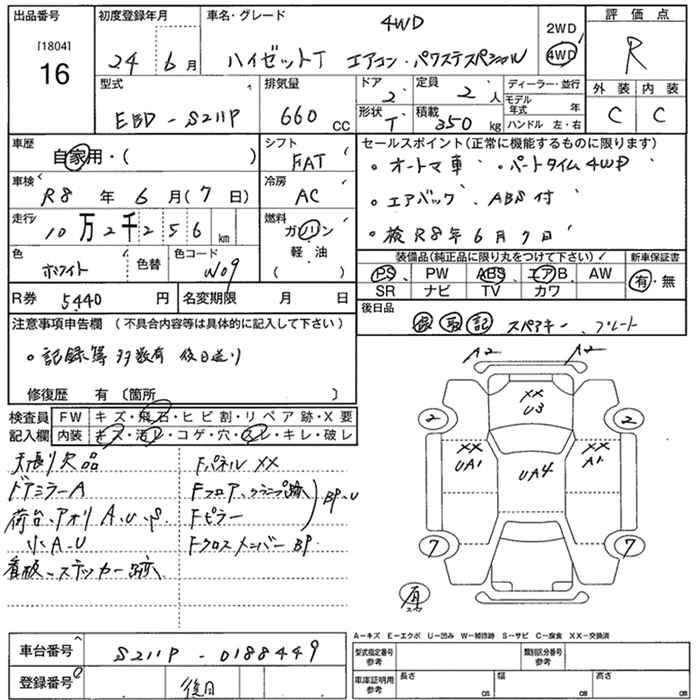 出品番号 初度登録年月 車名・グレード 4WD 2WD 評価点
[1804] 16 24年6月 ハイゼットT エアコン・パワステスペシャル 4WD R
型式 排気量 ドア 2 定員 2人 ディーラー・並行 外装 内装
EBD-S211P 660cc 形状 T 積載 350kg モデル年式 年 C C
ハンドル 左・右
車歴 シフト セールスポイント(正常に機能するものに限ります)
自家用・( ) FAT 。オートマ車 ・パートタイム4WD
車検 R8年6月(7日) 冷房 AC 。エアバック、ABS付
走行 10万2千256km 燃料 ガソリン 。検R8年6月7日
軽・油
( )
装備品(純正品に限り丸をつけて下さい) 新車保証書
色 ホワイト 色替 色コード W09 PS PW ABS エアB AW 有・無
SR ナビ TV カワ
R券 5,440円 名変期限 月 日 後日品
保 取 記 スペアキー、プレート
注意事項申告欄 (不具合内容等は具体的に記入して下さい)
。記録簿 多数有 後日送り
修復歴 有 〔箇所 〕
検査員 FW キズ・飛石・ヒビ割・リペア跡・X要
記入欄 内装 キズ・汚レ・コゲ・穴・スレ・キレ・破レ
天張り欠品 Fパネル XX
ドアミラーA Fフロア、クランプ跡 BP.U
荷台、アオリ A.U.P Fピラー
小A.U Fクロスメンバー BP
看板、ステッカー跡
A2 A2
XX
U3
2 2
XX XX
UA1 UA4 A1
7 7
A-キズ E-エクボ U-凹み W-補修跡 S-サビ C-腐食 XX-交換済
車台番号 S211P-0188449 型式指定番号 参考 類別区分番号
登録番号 後日 車庫証明用 参考 長さ cm 幅 cm 高さ cm